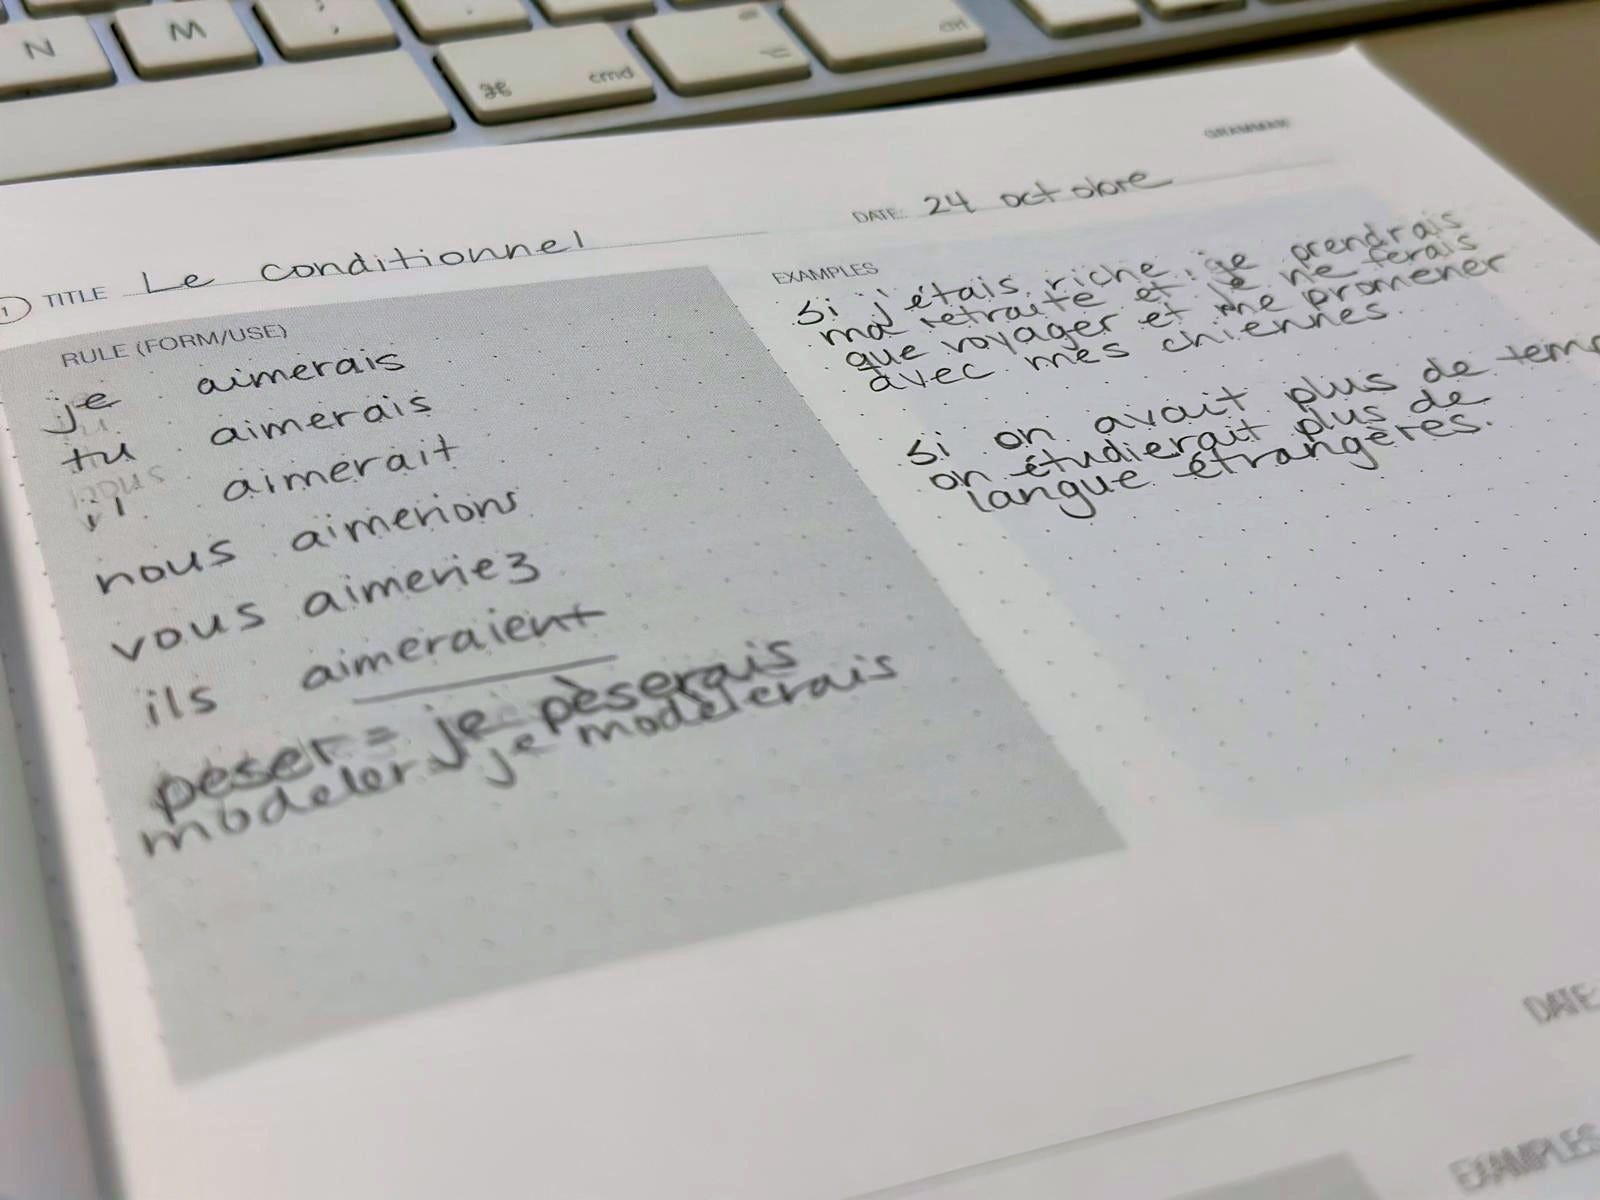 N
M
;
⌘ cmd
⌥
ctrl
GRAMMAR
DATE: 24 octobre
1 TITLE Le conditionnel
RULE (FORM/USE)
je aimerais
tu aimerais
il aimerait
nous aimerions
vous aimeriez
ils aimeraient
peser = je pèserais
modeler = je modèlerais
EXAMPLES
Si j'étais riche, je prendrais
ma retraite et je ne ferais
que voyager et me promener
avec mes chiennes.
Si on avait plus de temp
on étudierait plus de
langue étrangères.
DATE:
EXAMPLES